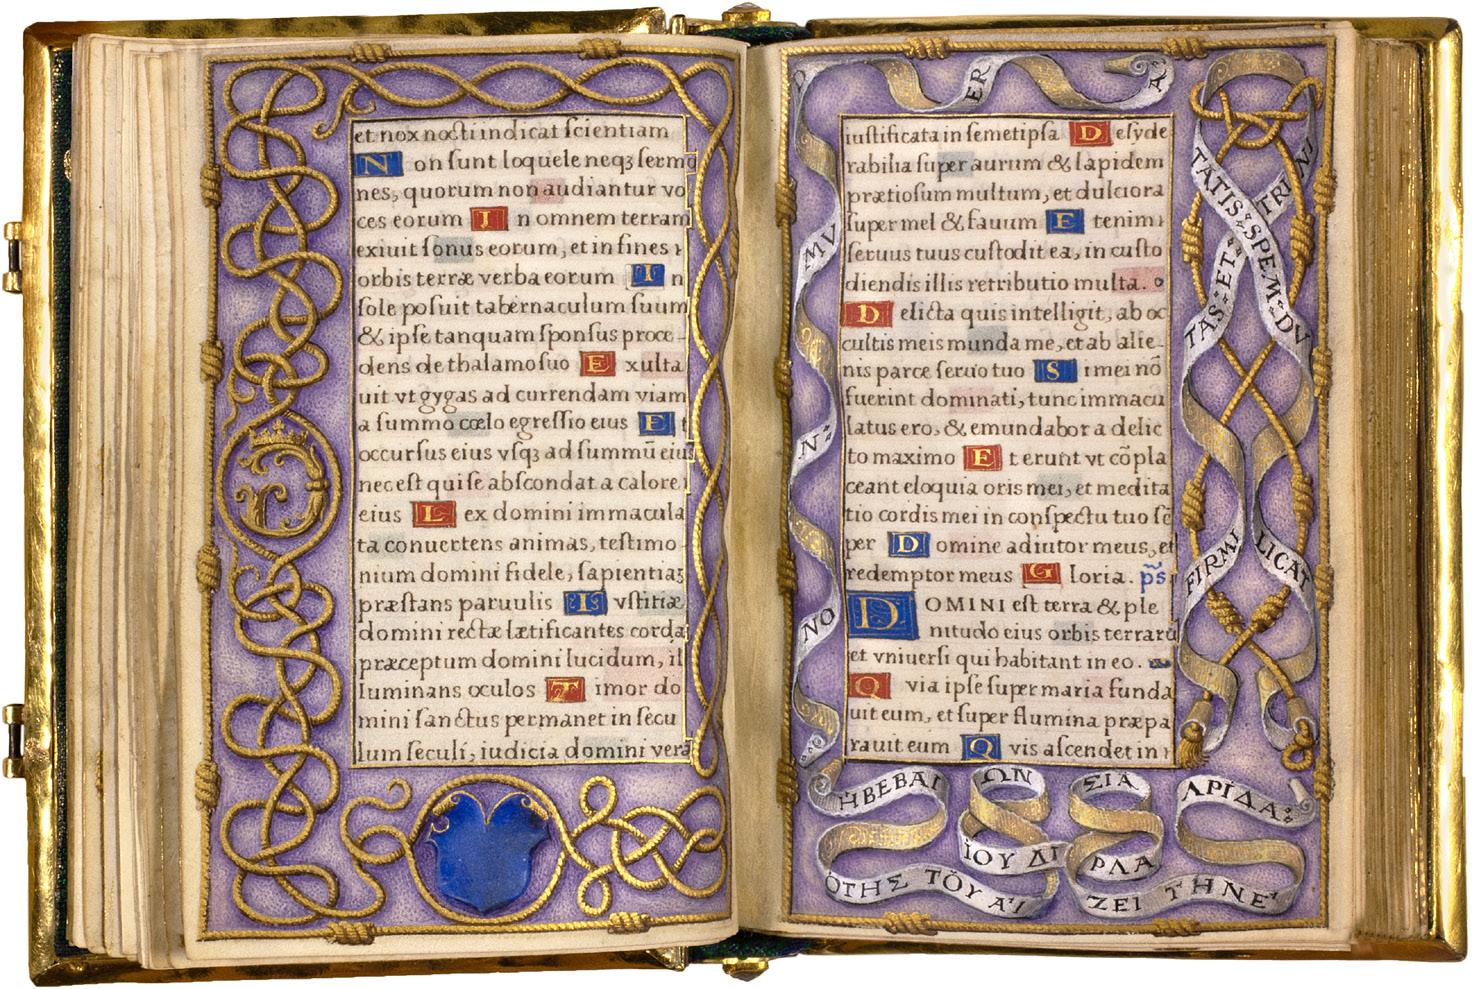 et nox nocti indicat scientiam
N on sunt loquele neqꝫ sermo
nes, quorum non audiantur vo
ces eorum I n omnem terram
exiuit sonus eorum, et in fines
orbis terræ verba eorum I n
sole posuit tabernaculum suum
& ipse tanquam sponsus proce
dens de thalamo suo E xulta
uit vt gygas ad currendam viam
a summo cœlo egressio eius E t
occursus eius vsqꝫ ad summū eius
nec est qui se abscondat a calore
eius L ex domini immacula
ta conuertens animas, testimo
nium domini fidele, sapientiaꝫ
præstans paruulis I vstitiæ
domini rectæ lætificantes corda
præceptum domini lucidum, il
luminans oculos T imor do
mini sanctus permanet in secu
lum seculi, iudicia domini vera
iustificata in semetipsa D esyde
rabilia super aurum & lapidem
prætiosum multum, et dulciora
super mel & fauum E tenim
seruus tuus custodit ea, in custo
diendis illis retributio multa.
D elicta quis intelligit, ab oc
cultis meis munda me, et ab alie
nis parce seruo tuo S i mei nō
fuerint dominati, tunc immacu
latus ero, & emundabor a delic
to maximo E t erunt vt cōpla
ceant eloquia oris mei, et medita
tio cordis mei in conspectu tuo sē
per D omine adiutor meus, et
redemptor meus G loria. p̄s̄
D OMINI est terra & ple
nitudo eius orbis terrarū
et vniuersi qui habitant in eo.
Q via ipse super maria funda
uit eum, et super flumina præpa
rauit eum Q vis ascendet in
ER
A
MV
N
NO
TATIS SPEM DV
TRINI
TAS ET
FIRMI
LICAT
ἩΒΕΒΑΙ
ΩΝ
ΣΙΑ
ΛΡΙΔΑ
ΪΟΥ ΔΙ
ΡΛΑ
ΌΤΗΣ ΤΟΥ ΑΙ
ΖΕΙ ΤΗΝΕ